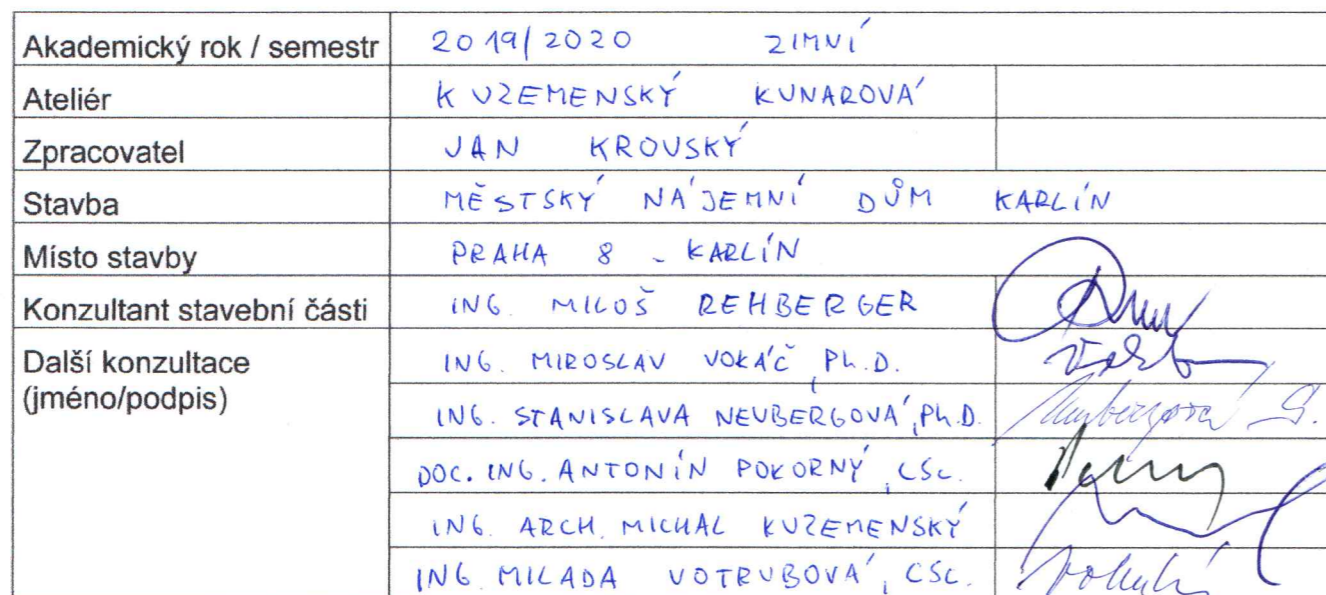 Akademický rok / semestr 2019/2020 ZIMNÍ
Ateliér KUZEMENSKÝ KUNAROVÁ
Zpracovatel JAN KROUSKÝ
Stavba MĚSTSKÝ NÁJEMNÍ DŮM KARLÍN
Místo stavby PRAHA 8 - KARLÍN
Konzultant stavební části ING. MILOŠ REHBERGER
Další konzultace ING. MIROSLAV VOKÁČ, Ph.D.
(jméno/podpis)
ING. STANISLAVA NEUBERGOVÁ, Ph.D.
DOC. ING. ANTONÍN POKORNÝ, CSc.
ING. ARCH. MICHAL KUZEMENSKÝ
ING. MILADA VOTRUBOVÁ, CSc.